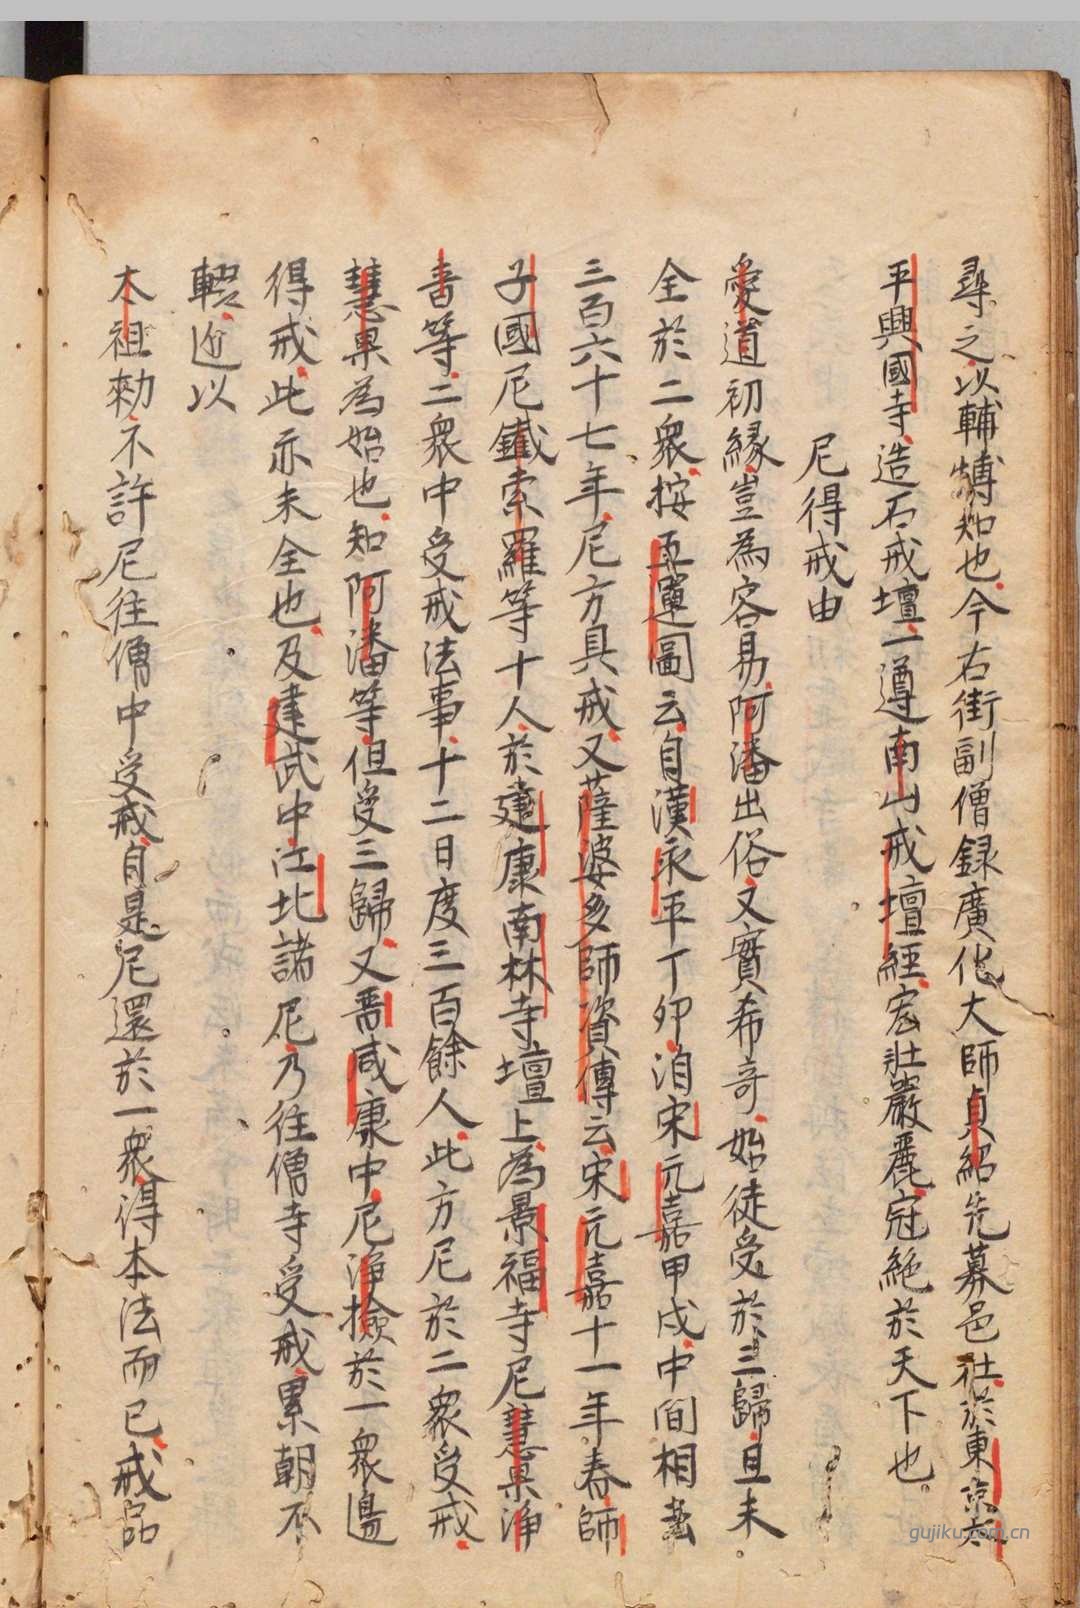 尋之以輔博知也今右街副僧録廣化大師貞紹先募邑社於東京太
平興國寺造石戒壇一遵南山戒壇經宏壯嚴麗冠絶於天下也
尼得戒由
愛道初縁豈為容易阿潘出俗又實希竒始徒受於三歸且未
全於二衆按五運圖云自漢永平丁卯洎宋元嘉甲戌中間相去
三百六十七年尼方具戒又薩婆多師資傳云宋元嘉十一年春師
子國尼鐵索羅等十人於建康南林寺壇上為景福寺尼慧果淨
音等二衆中受戒法事十二日度三百餘人此方尼於二衆受戒
慧果為始也知阿潘等但受三歸又晋咸康中尼淨檢於一衆邊
得戒此亦未全也及建武中江北諸尼乃往僧寺受戒累朝不
輟近以
太祖勑不許尼往僧中受戒自是尼還於一衆得本法而已戒品
gujiku.com.cn